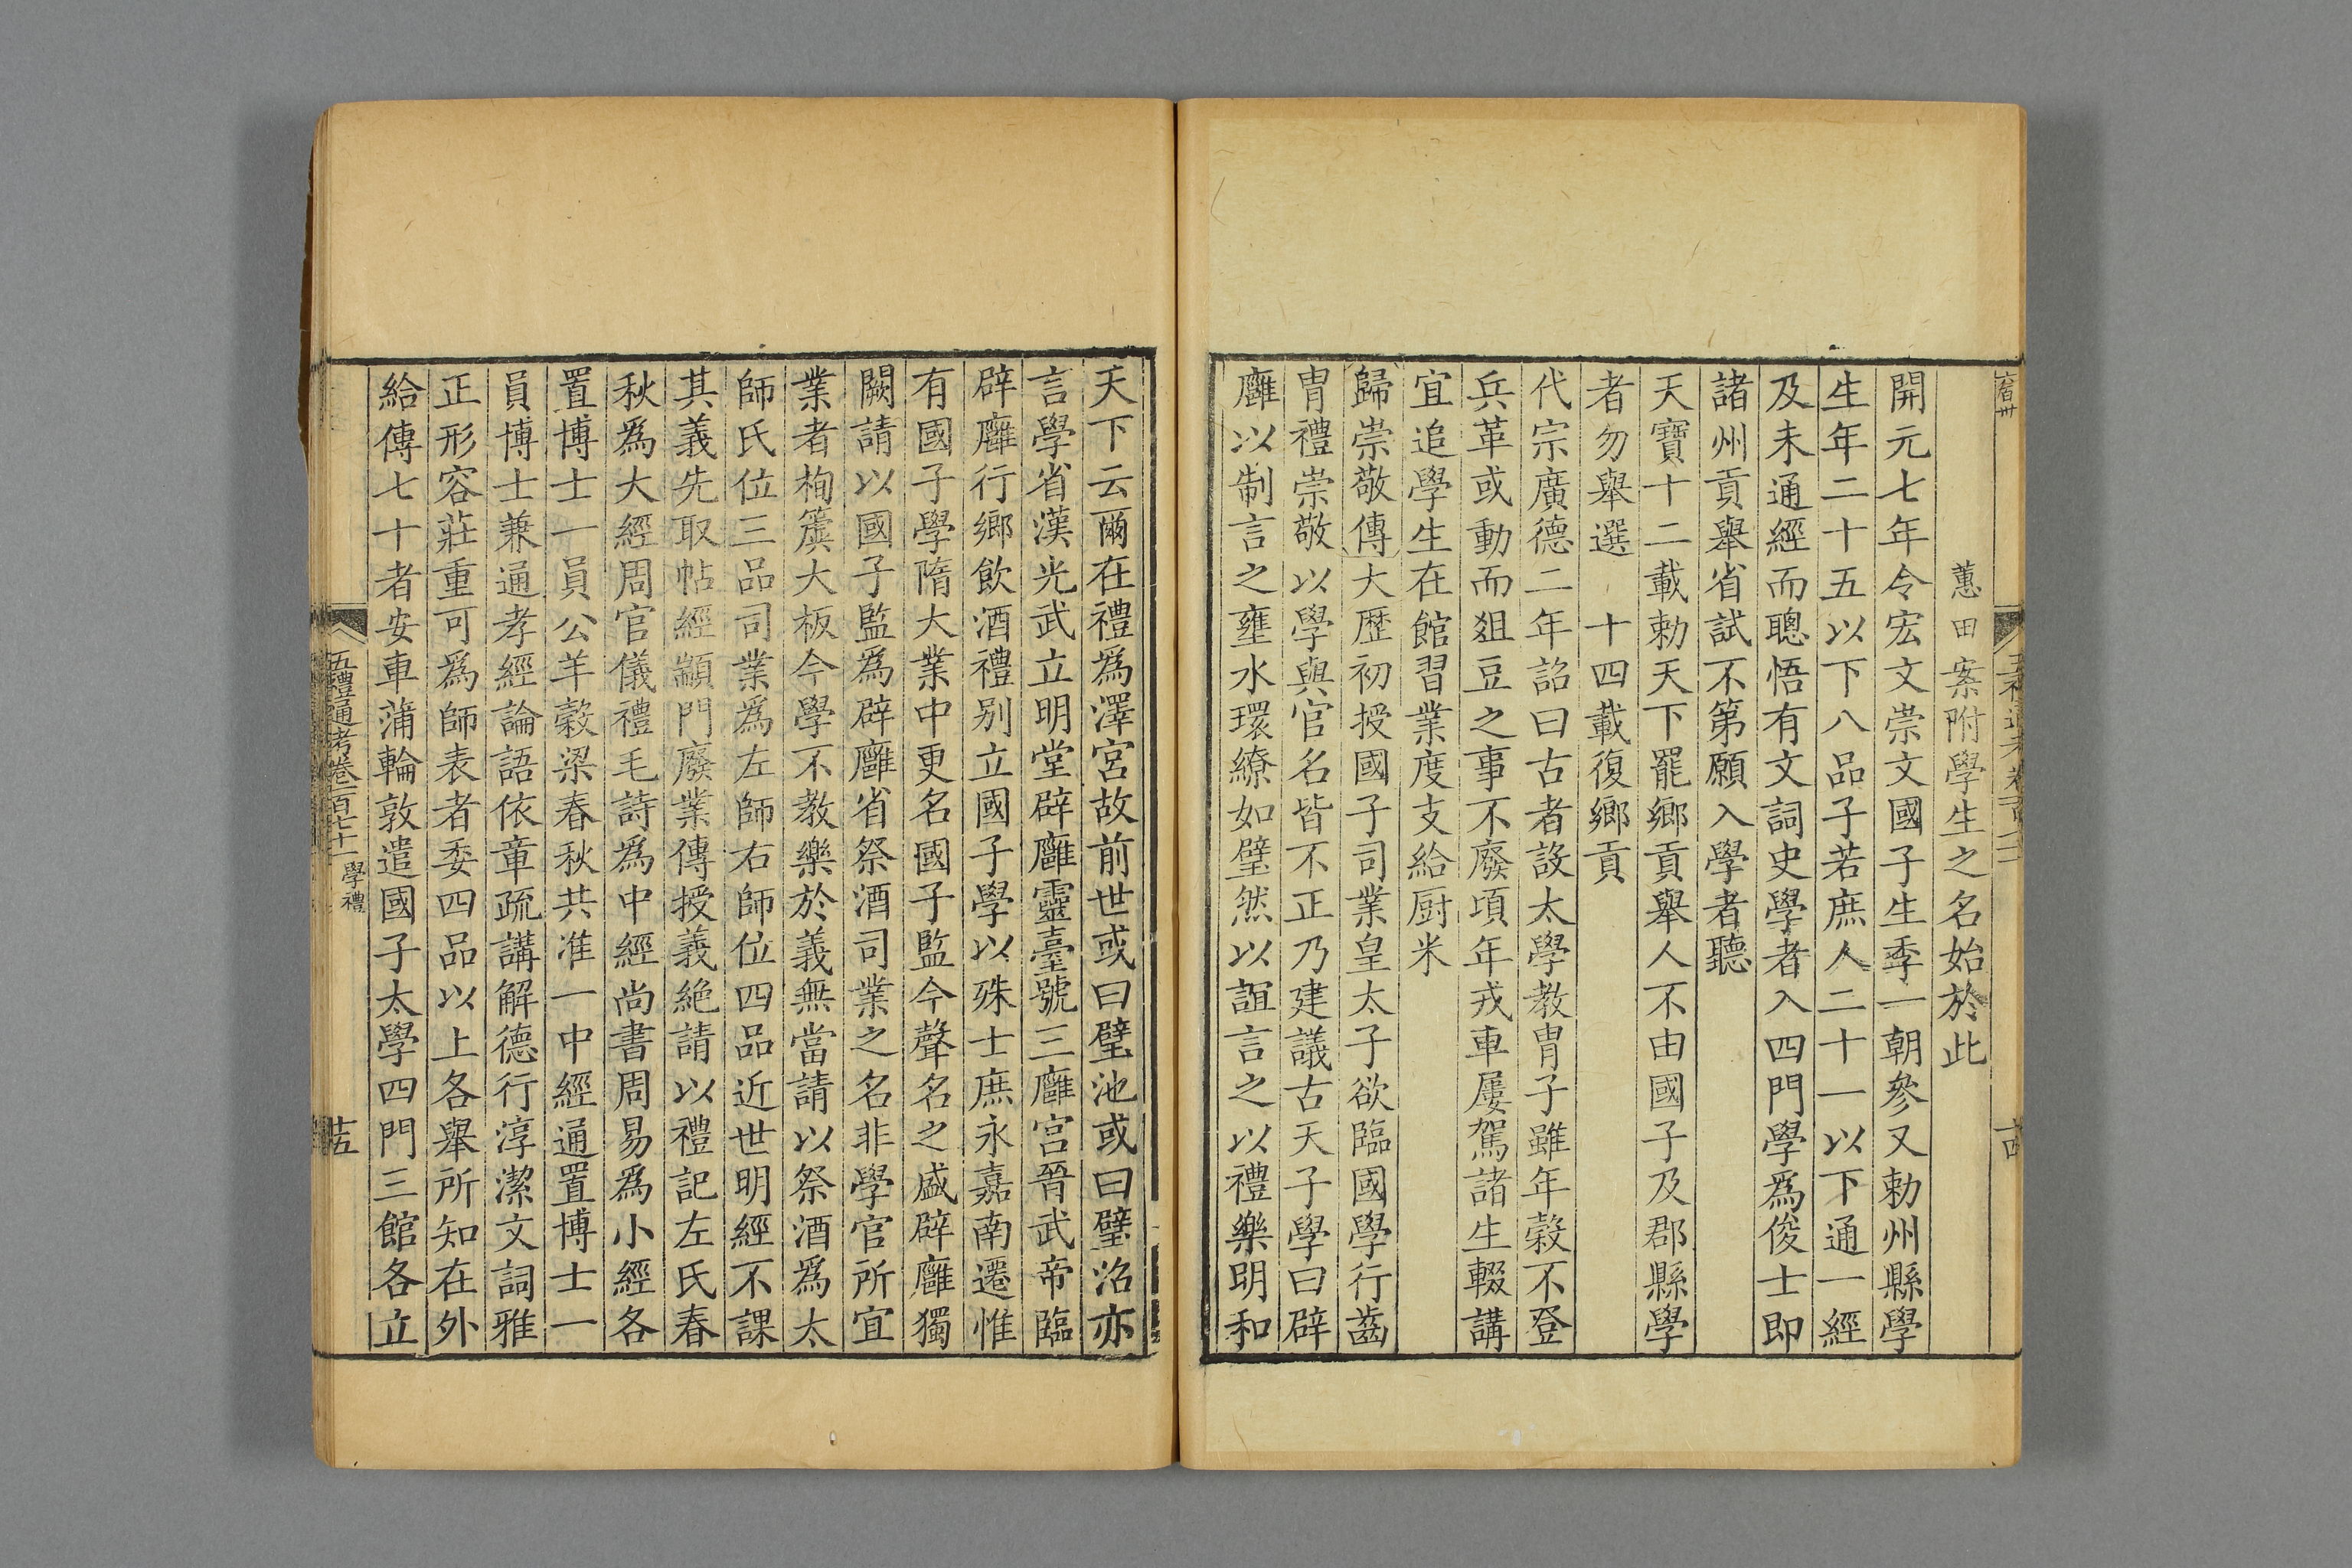 蕙田案附學生之名始於此
開元七年令宏文崇文國子生季一朝參又勅州縣學
生年二十五以下八品子若庶人二十一以下通一經
及未通經而聰悟有文詞史學者入四門學爲俊士即
諸州貢舉省試不第願入學者聽
天寶十二載勅天下罷鄉貢舉人不由國子及郡縣學
者勿舉選 十四載復鄉貢
代宗廣德二年詔曰古者設太學教胄子雖年穀不登
兵革或動而俎豆之事不廢頃年戎車屢駕諸生輟講
宜追學生在館習業度支給厨米
歸崇敬傳大歷初授國子司業皇太子欲臨國學行齒
胄禮崇敬以學與官名皆不正乃建議古天子學曰辟
廱以制言之壅水環繚如璧然以誼言之以禮樂明和
天下云爾在禮爲澤宮故前世或曰璧池或曰璧沼亦
言學省漢光武立明堂辟廱靈臺號三廱宮晉武帝臨
辟廱行鄉飲酒禮別立國子學以殊士庶永嘉南遷惟
有國子學隋大業中更名國子監今聲名之盛辟廱獨
闕請以國子監爲辟廱省祭酒司業之名非學官所宜
業者栒簴大板今學不教樂於義無當請以祭酒爲太
師氏位三品司業爲左師右師位四品近世明經不課
其義先取帖經顓門廢業傳授義絶請以禮記左氏春
秋爲大經周官儀禮毛詩爲中經尚書周易爲小經各
置博士一員公羊穀梁春秋共准一中經通置博士一
員博士兼通孝經論語依章疏講解德行淳潔文詞雅
正形容莊重可爲師表者委四品以上各舉所知在外
給傳七十者安車蒲輪敦遣國子太學四門三館各立
五禮通考卷一百七十一 學禮
十五